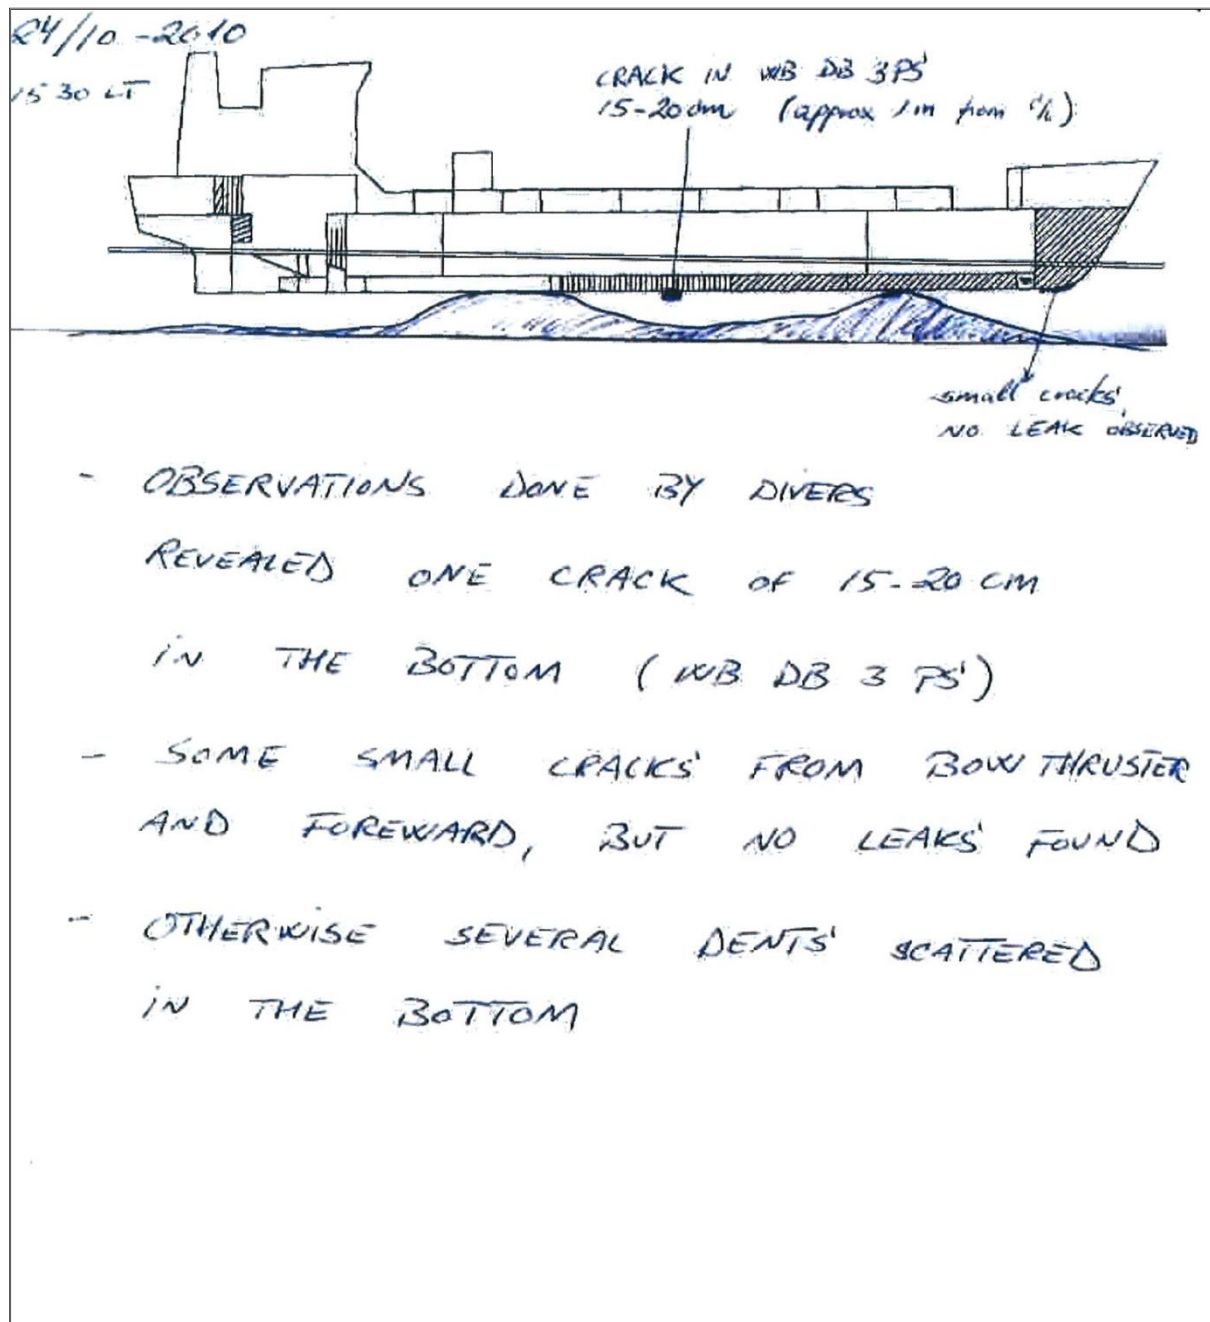 24/10-2010
15 30 LT
CRACK IN WB DB 3 PS
15-20 cm (approx 1 m from c/l)
small cracks
NO LEAK OBSERVED
- OBSERVATIONS DONE BY DIVERS
REVEALED ONE CRACK OF 15-20 CM
IN THE BOTTOM (WB DB 3 PS)
- SOME SMALL CRACKS FROM BOW THRUSTER
AND FOREWARD, BUT NO LEAKS FOUND
- OTHERWISE SEVERAL DENTS SCATTERED
IN THE BOTTOM